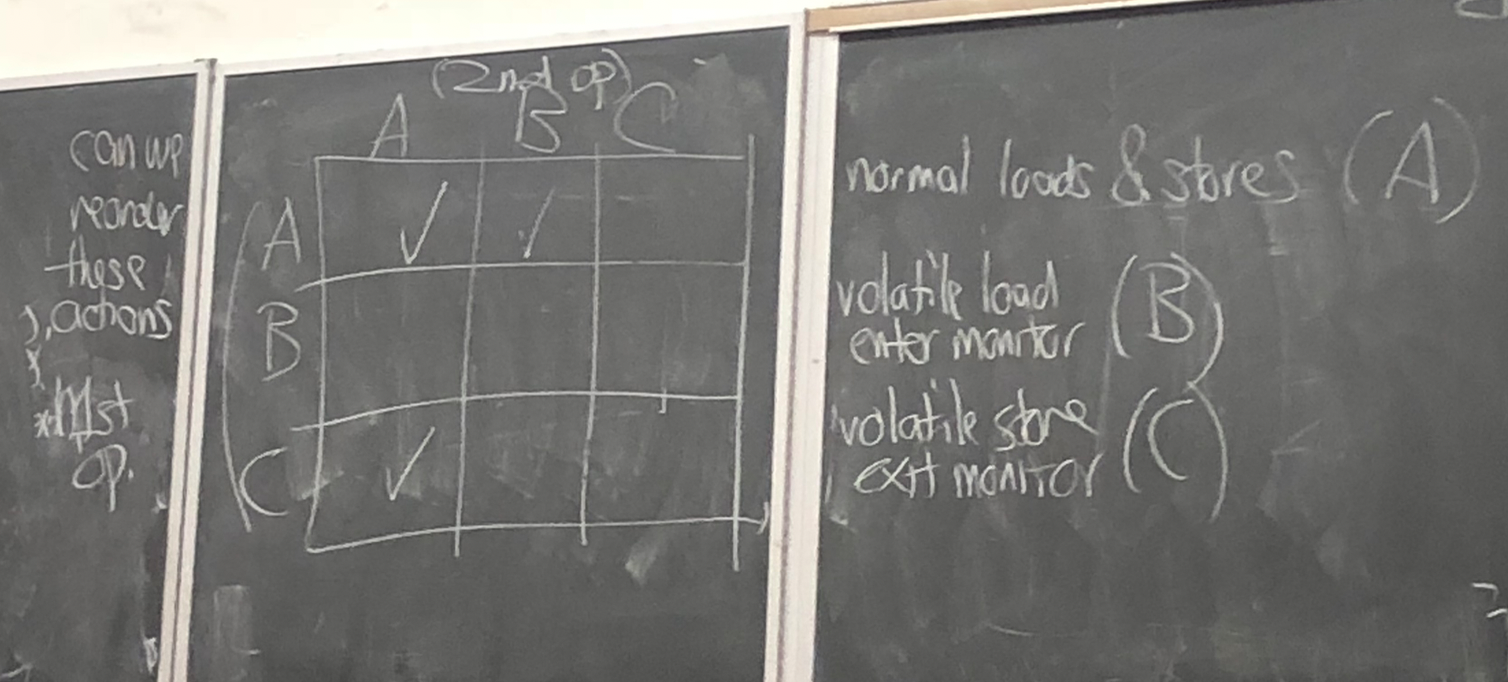 can we
reorder
these
actions
1st
op.
(2nd op)
A B C
A ✓ ✓
B
C ✓
normal loads & stores (A)
volatile load
enter monitor (B)
volatile store
exit monitor (C)